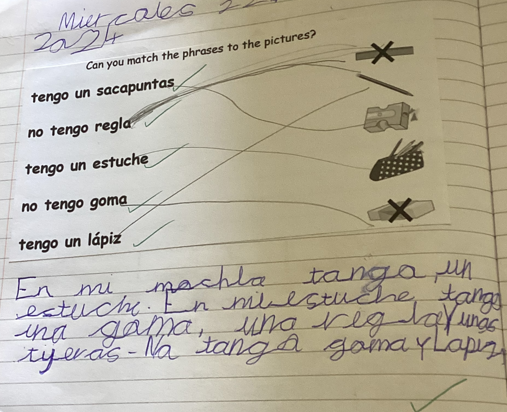 Miercales 22
2024
Can you match the phrases to the pictures?
tengo un sacapuntas
no tengo regla
tengo un estuche
no tengo goma
tengo un lápiz
En mi mochla tanga, un
estuche. En mi estuche, tango
una gama, una regla y unas
tijeras - Na tanga goma y Lapiz,